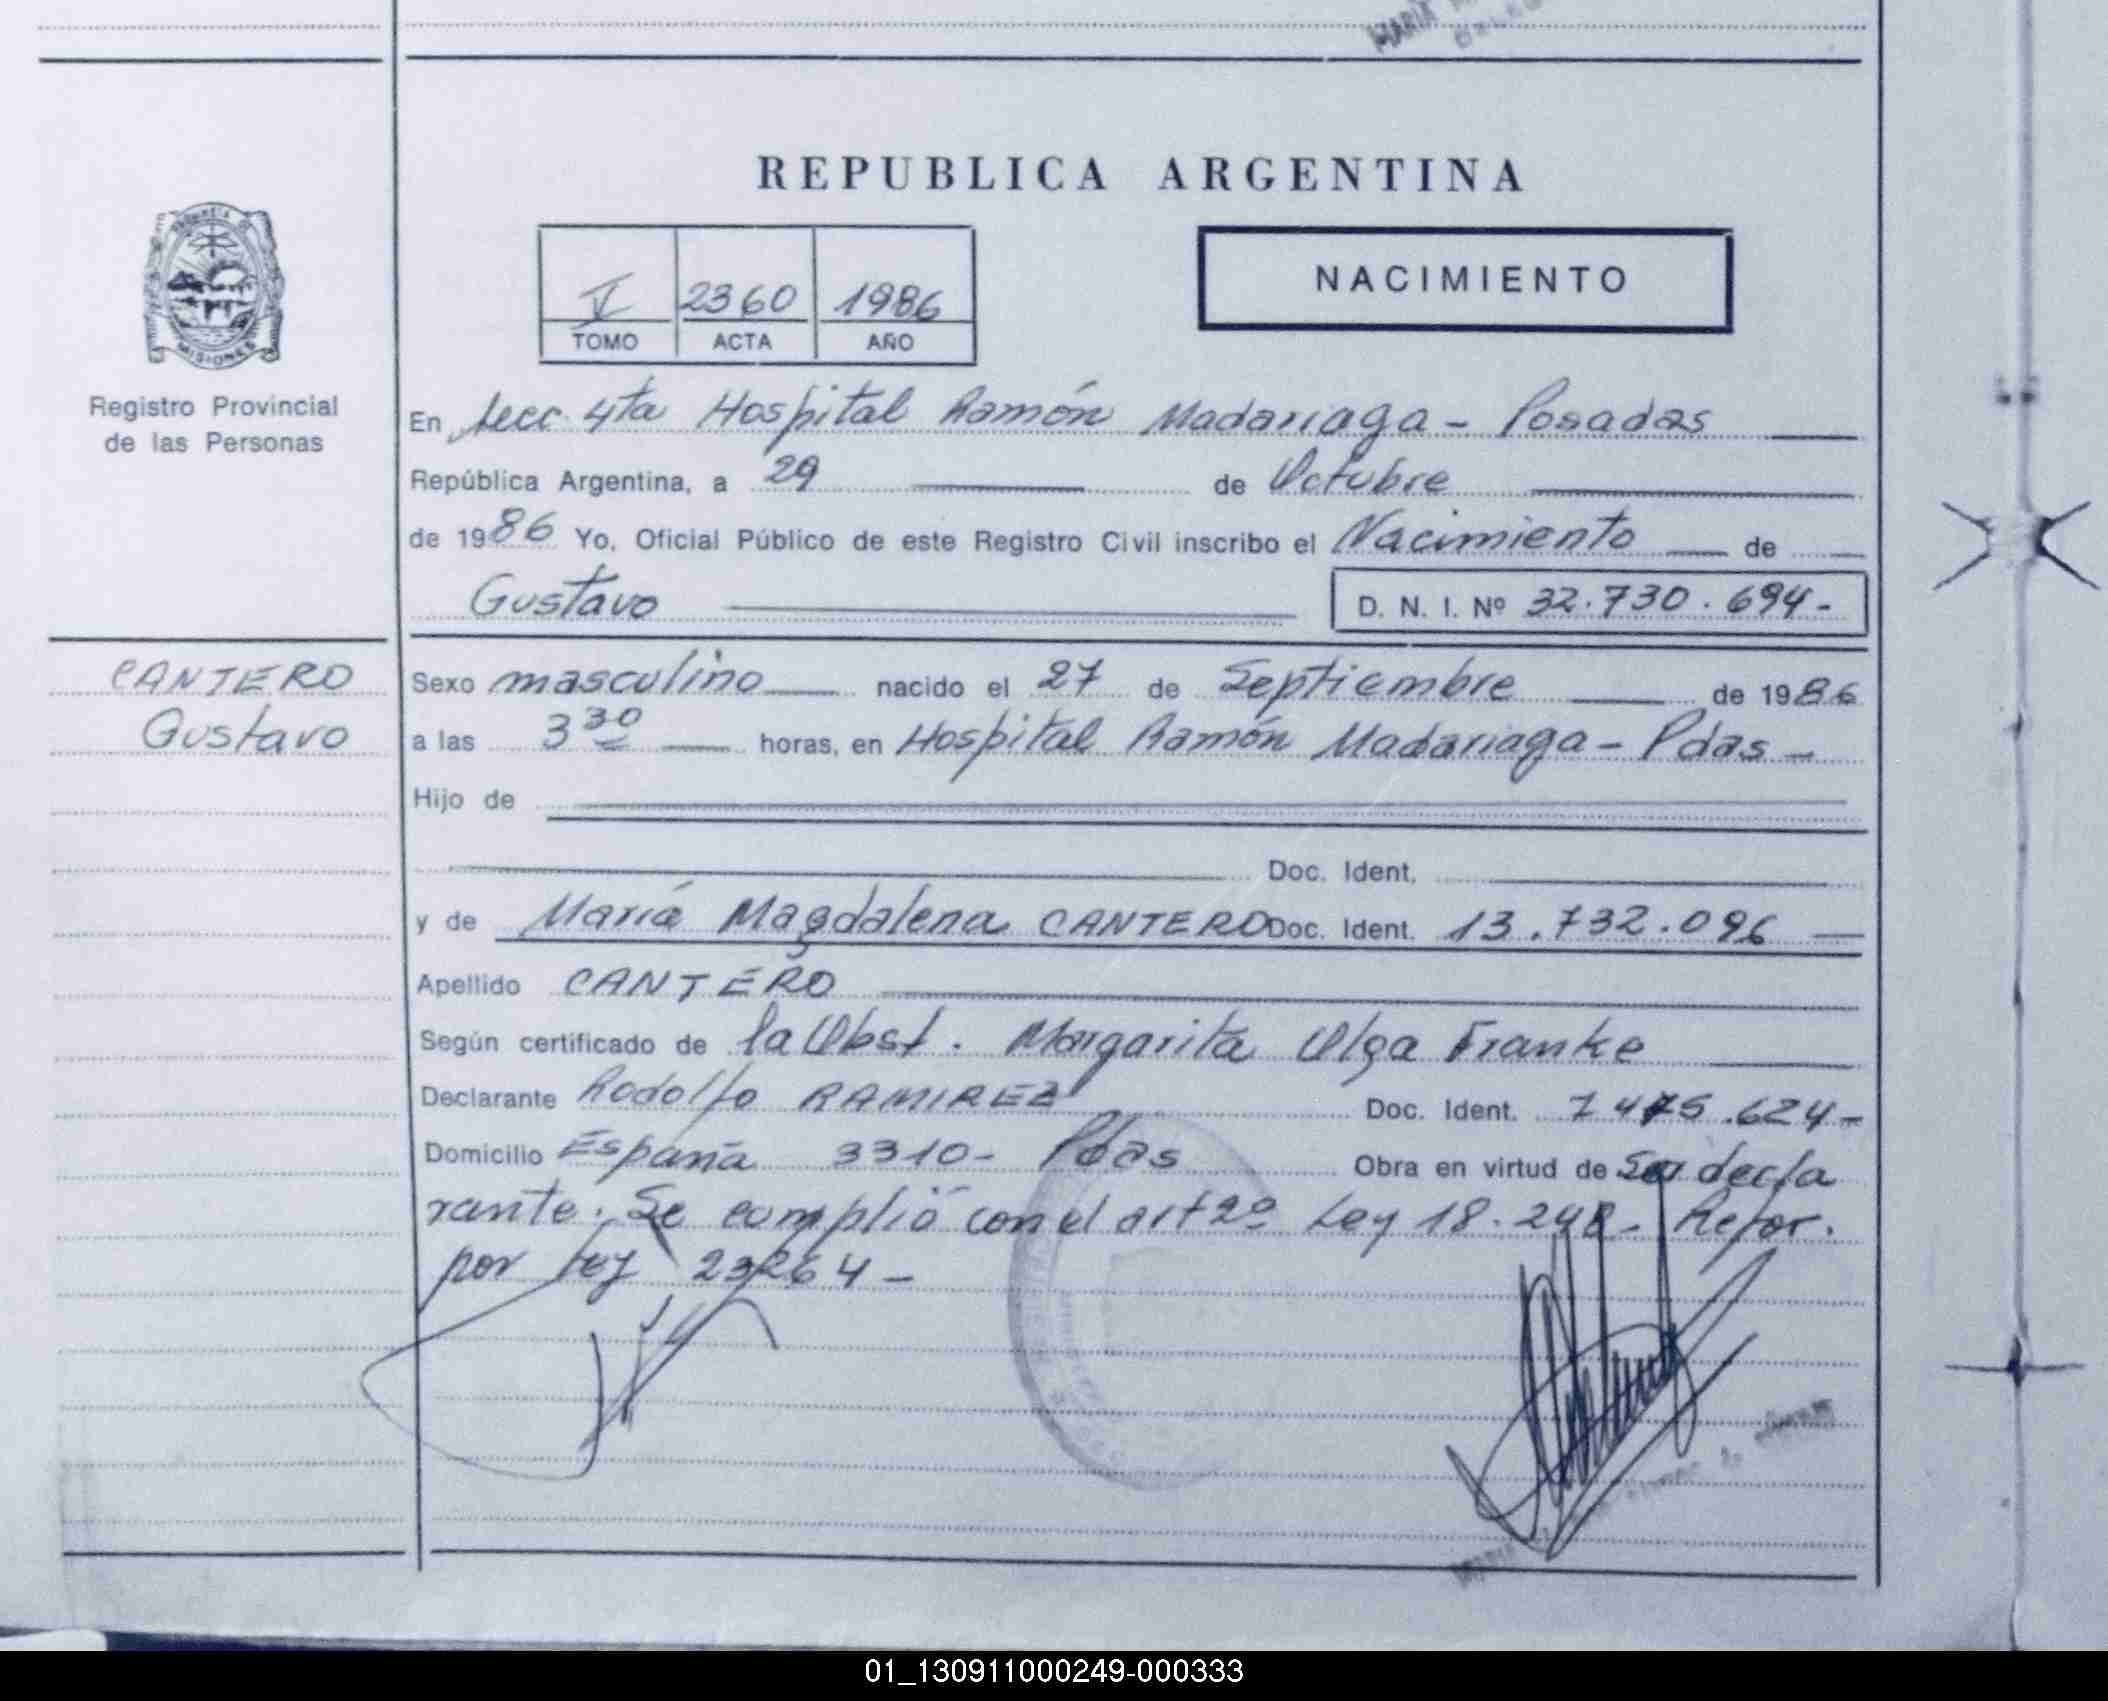 REPUBLICA ARGENTINA
V 2360 1986
TOMO ACTA AÑO
NACIMIENTO
MISIONES
Registro Provincial
de las Personas
En Secc. 4ta Hospital Ramón Madariaga - Posadas
República Argentina, a 29 de Octubre
de 1986 Yo, Oficial Público de este Registro Civil inscribo el Nacimiento de
Gustavo D. N. I. Nº 32.730.694-
CANTERO
Gustavo
Sexo masculino nacido el 27 de Septiembre de 1986
a las 3 30 horas, en Hospital Ramón Madariaga - Pdas -
Hijo de
Doc. Ident.
y de María Magdalena CANTERO Doc. Ident. 13.732.096
Apellido CANTERO
Según certificado de la Obst. Margarita Olga Franke
Declarante Rodolfo RAMIREZ Doc. Ident. 7475.624-
Domicilio España 3310- Pdas Obra en virtud de Ser decla
rante. Se cumplió con el art 2º Ley 18.248- Refor.
por Ley 23264-
01_130911000249-000333